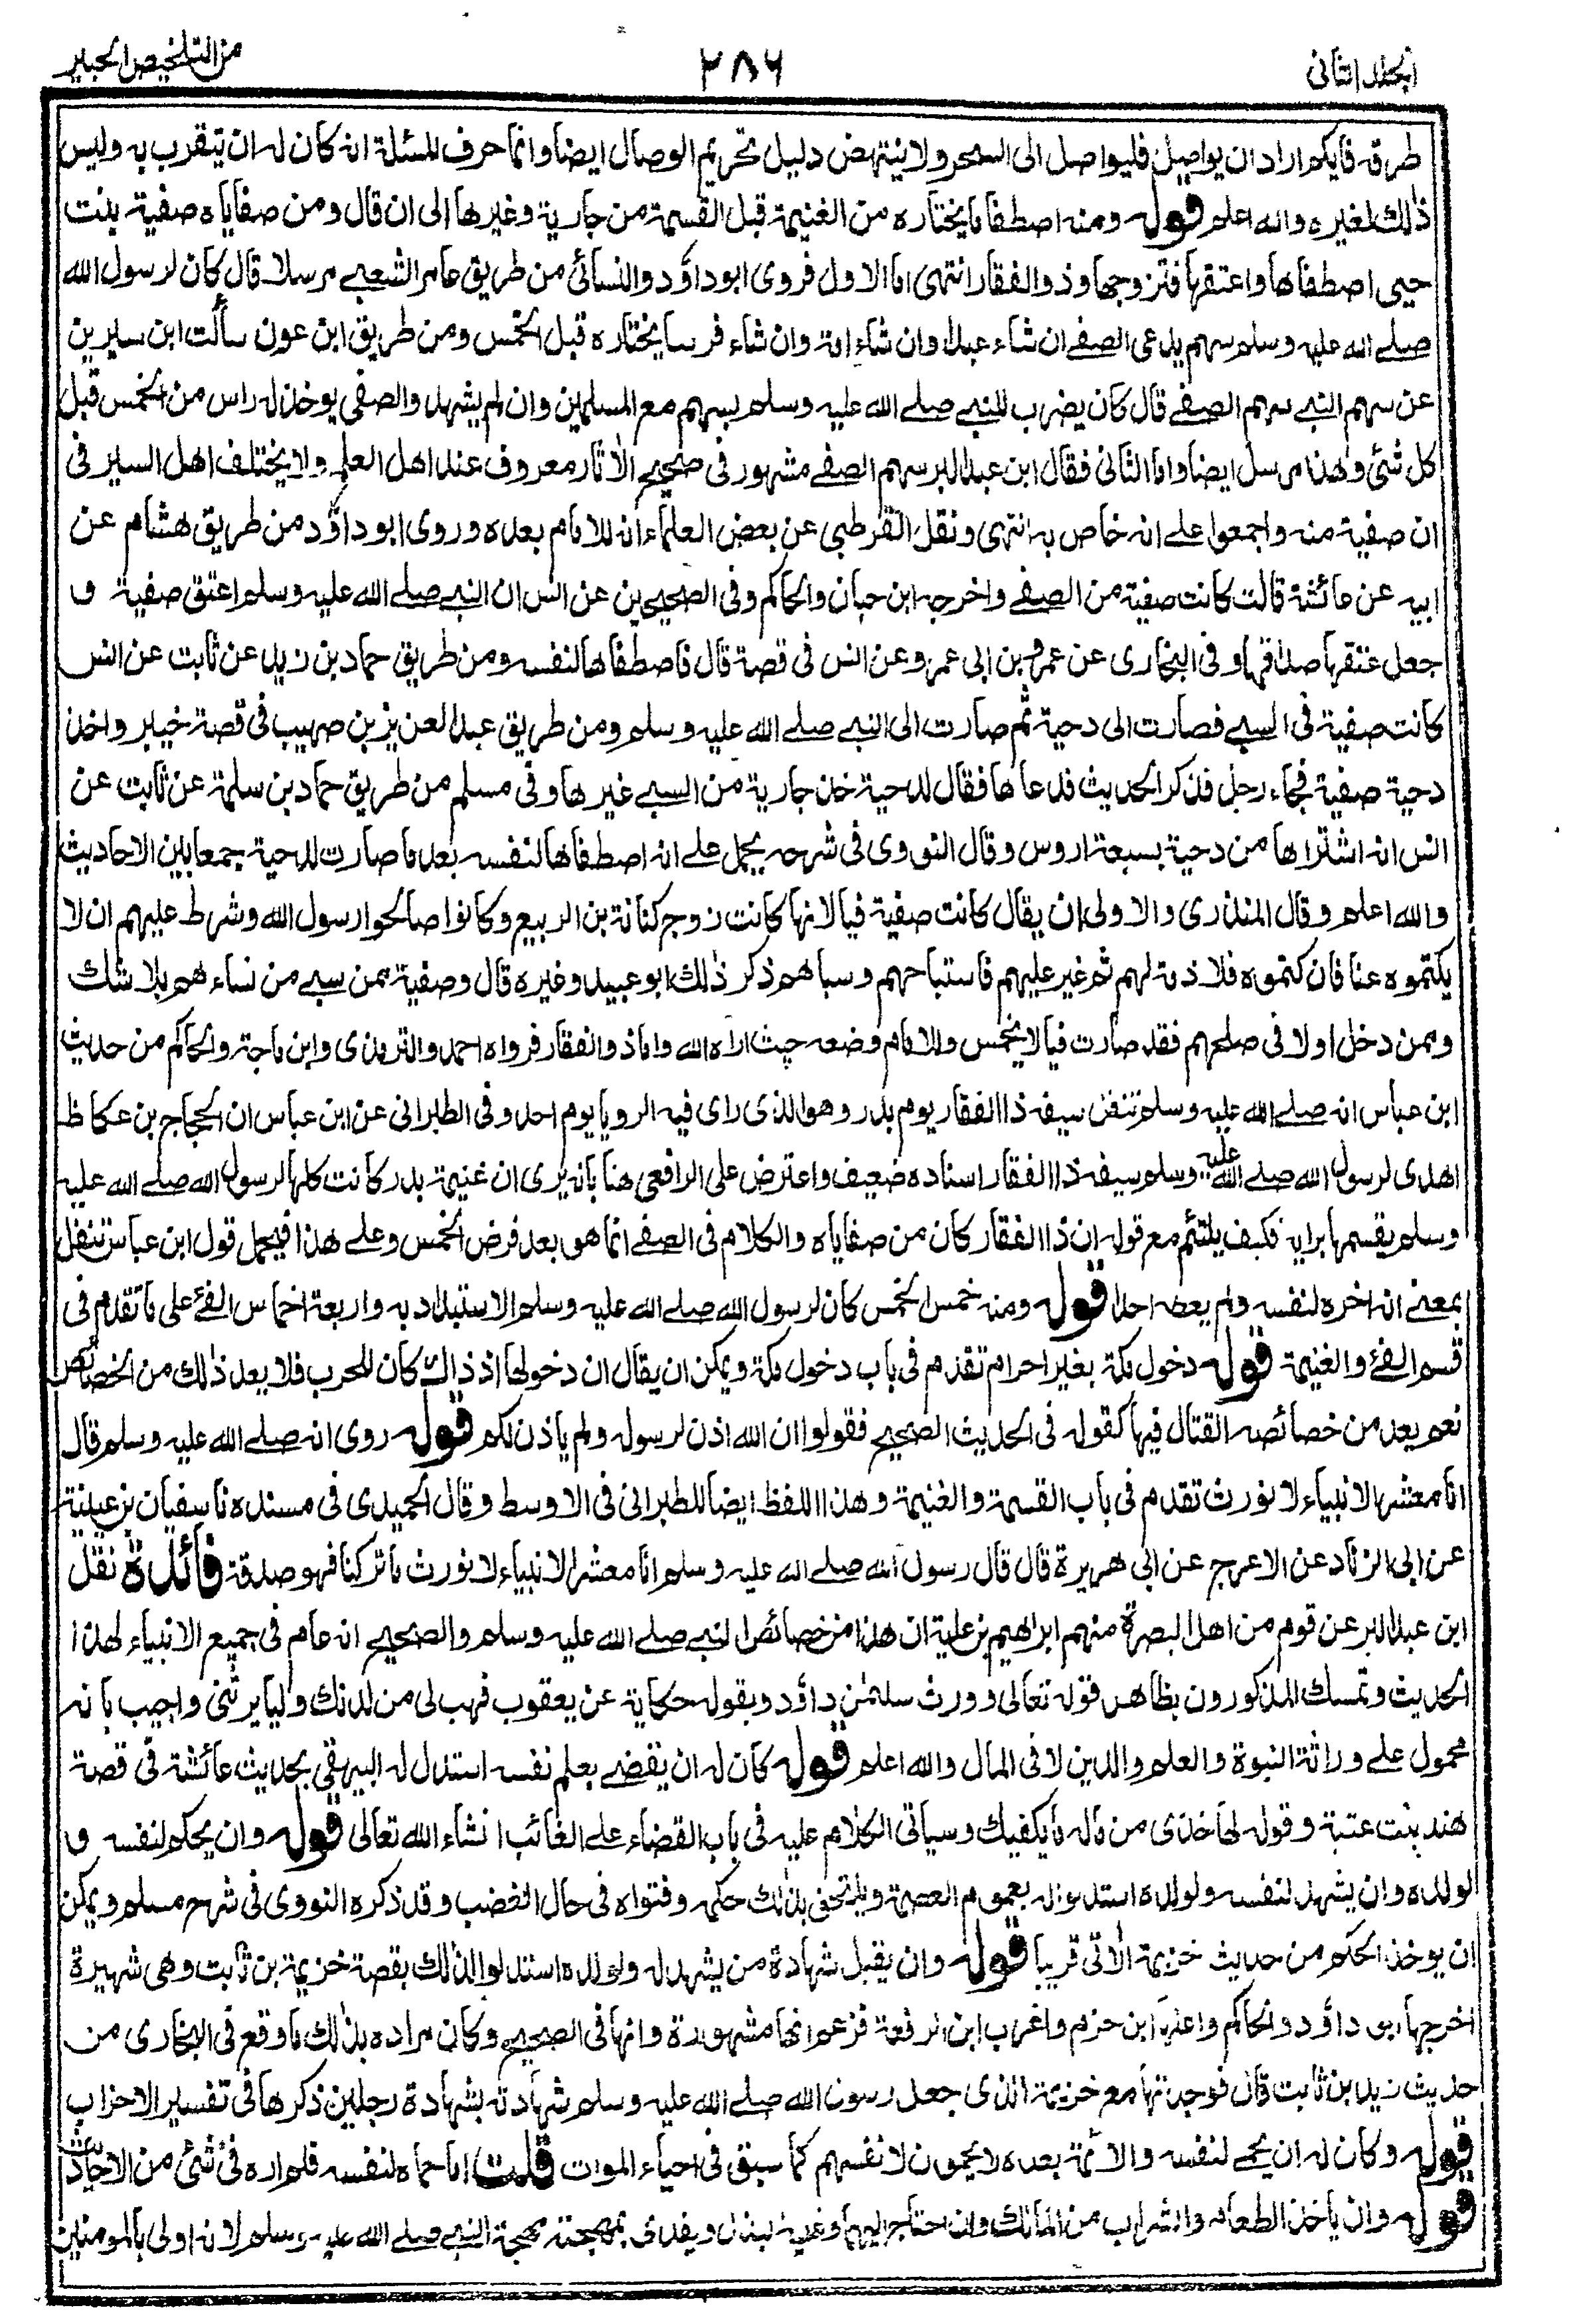 الجلد الثانى
٢٨٦
من التلخيص الحبير
طرقه فايكم اراد ان يواصل فليواصل الى السحر ولا ينتهض دليل تحريم الوصال ايضا وانما حرف المسئلة انه كان له ان يتقرب به وليس
ذلك لغيره والله اعلم قوله ومنه اصطفا ما يختاره من الغنيمة قبل القسمة من جارية وغيرها الى ان قال ومن صفاياه صفية بنت
حيى اصطفاها واعتقها فتزوجها وذو الفقار انتهى اما الاول فروى ابو داؤد والنسائى من طريق عامر الشعبے مرسلا قال كان لرسول الله
صلے الله عليه وسلم سهم يدعى الصفے ان شاء عبدا وان شاء امة وان شاء فرسا يختاره قبل الخمس ومن طريق ابن عون سألت ابن سيرين
عن سهم النبے سهم الصفے قال كان يضرب للنبے صلے الله عليه وسلم بسهم مع المسلمين وان لم يشهد والصفى يوخذ له راس من الخمس قبل
كل شئ وهذا مرسل ايضا واما الثانى فقال ابن عبد البر سهم الصفے مشهور فى صحيح الاٰثار معروف عند اهل العلم ولا يختلف اهل السير فى
ان صفية منه واجمعوا علے انه خاص به انتهى ونقل القرطبى عن بعض العلماء انه للامام بعده وروى ابو داؤد من طريق هشام عن
ابيه عن عائشة قالت كانت صفية من الصفے واخرجه ابن حبان والحاكم وفى الصحيحين عن انس ان النبے صلے الله عليه وسلم اعتق صفية و
جعل عتقها صداقها وفى البخارى عن عمرو بن ابى عمرو عن انس فى قصة قال فاصطفاها لنفسه ومن طريق حماد بن زيد عن ثابت عن انس
كانت صفية فى السبے فصارت الى دحية ثم صارت الى النبے صلے الله عليه وسلم ومن طريق عبد العزيز بن صهيب فى قصة خيبر واخذ
دحية صفية فجاء رجل فذكر الحديث فدعا ها فقال لدحية خذ جارية من السبے غيرها وفى مسلم من طريق حماد بن سلمة عن ثابت عن
انس انه اشتراها من دحية بسبعة اروس وقال النووى فى شرحه يحمل علے انه اصطفاها لنفسه بعد ما صارت لدحية جمعا بين الاحاديث
والله اعلم وقال المنذرى والاولى ان يقال كانت صفية فيا لانها كانت زوج كنانة بن الربيع وكانوا صالحوا رسول الله وشرط عليهم ان لا
يكتموه عنا فان كتموه فلا ذمة لهم ثم غير عليهم فاستباحهم وسباهم ذكر ذلك ابو عبيد وغيره قال وصفية ممن سبے من نساءهم بلا شك
وممن دخل اولا فى صلحهم فقد صارت فيا لا يخمس وللامام وضعه حيث اراه الله واما ذو الفقار فرواه احمد والترمذى وابن ماجة والحاكم من حديث
ابن عباس انه صلے الله عليه وسلم تنفل سيفه ذا الفقار يوم بدر وهو الذى راى فيه الرويا يوم احد وفى الطبرانى عن ابن عباس ان الحجاج بن عكاظ
اهدى لرسول الله صلے الله عليه وسلم سيفه ذا الفقار اسناده ضعيف واعترض على الرافعى هنا بانه يرى ان غنيمة بدر كانت كلها لرسول الله صلے الله عليه
وسلم يقسمها برايه فكيف يلتئم مع قوله ان ذا الفقار كان من صفاياه والكلام فى الصفے انما هو بعد فرض الخمس وعلے هذا فيحمل قول ابن عباس تنفل
بمعنے انه اخره لنفسه ولم يعطه احدا قوله ومنه خمس الخمس كان لرسول الله صلے الله عليه وسلم الاستبداد به واربعة اخماس الفئ على ما تقدم فى
قسم الفئ والغنيمة قوله دخول مكة بغير احرام تقدم فى باب دخول مكة ويمكن ان يقال ان دخولها اذ ذاك كان للحرب فلا يعد ذلك من الخصائص
نعم يعد من خصائصه القتال فيها كقوله فى الحديث الصحيح فقولوا ان الله اذن لرسوله ولم ياذن لكم قوله روى انه صلے الله عليه وسلم قال
انا معشر الانبياء لا نورث تقدم فى باب القسمة والغنيمة وهذا اللفظ ايضا للطبرانى فى الاوسط وقال الحميدى فى مسنده نا سفيان بن عيينة
عن ابى الزناد عن الاعرج عن ابى هريرة قال قال رسول الله صلے الله عليه وسلم انا معشر الانبياء لا نورث ما تركنا فهو صدقة فائدة نقل
ابن عبد البر عن قوم من اهل البصرة منهم ابراهيم بن علية ان هذا من خصائص النبے صلے الله عليه وسلم والصحيح انه عام فى جميع الانبياء لهذا
الحديث وتمسك المذكورون بظاهر قوله تعالى وورث سليمٰن داؤد وبقوله حكاية عن يعقوب فهب لى من لدنك وليا يرثنى واجيب بانه
محمول علے وراثة النبوة والعلم والدين لا فى المال والله اعلم قوله كان له ان يقضے بعلم نفسه استدل له البيهقى بحديث عائشة فى قصة
هند بنت عتبة وقوله لها خذى من ماله ما يكفيك وسياتى الكلام عليه فى باب القضاء علے الغائب انشاء الله تعالى قوله وان يحكم لنفسه و
لولده وان يشهد لنفسه ولولده استدلوا له بعموم العصمة ويلتحق بذلك حكمه وفتواه فى حال الغضب وقد ذكره النووى فى شرح مسلم ويمكن
ان يوخذ الحكم من حديث خزيمة الاٰتى قريبا قوله وان يقبل شهادة من يشهد له ولولده استدلوا لذلك بقصة خزيمة بن ثابت وهى شهيرة
اخرجها ابو داؤد والحاكم واعلها ابن حزم واغرب ابن الرفعة فزعم انها مشهورة وانها فى الصحيح وكان مراده بذلك ما وقع فى البخارى من
حديث زيد بن ثابت قال فوجدتها مع خزيمة الذى جعل رسول الله صلے الله عليه وسلم شهادته بشهادة رجلين ذكرها فى تفسير الاحزاب
قوله وكان له ان يحمے لنفسه والائمة بعده لا يحمون لانفسهم كما سبق فى احياء الموات قلت اما حماه لنفسه فلم اره فى شئ من الاحاديث
قوله وان ياخذ الطعام والشراب من المالك وان احتاج اليهما وعليه البذل ويفدى بمهجته مهجة النبے صلے الله عليه وسلم لانه اولى بالمومنين